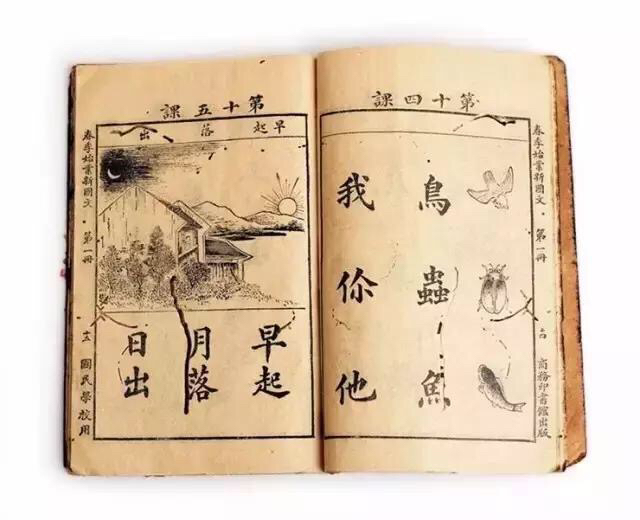 第十四課
鳥 蟲 魚
我 你 他
春季始業新國文 · 第一冊
商務印書館出版
第十五課
早起 落 出
早起
月落
日出
春季始業新國文 · 第一冊
國民學校用